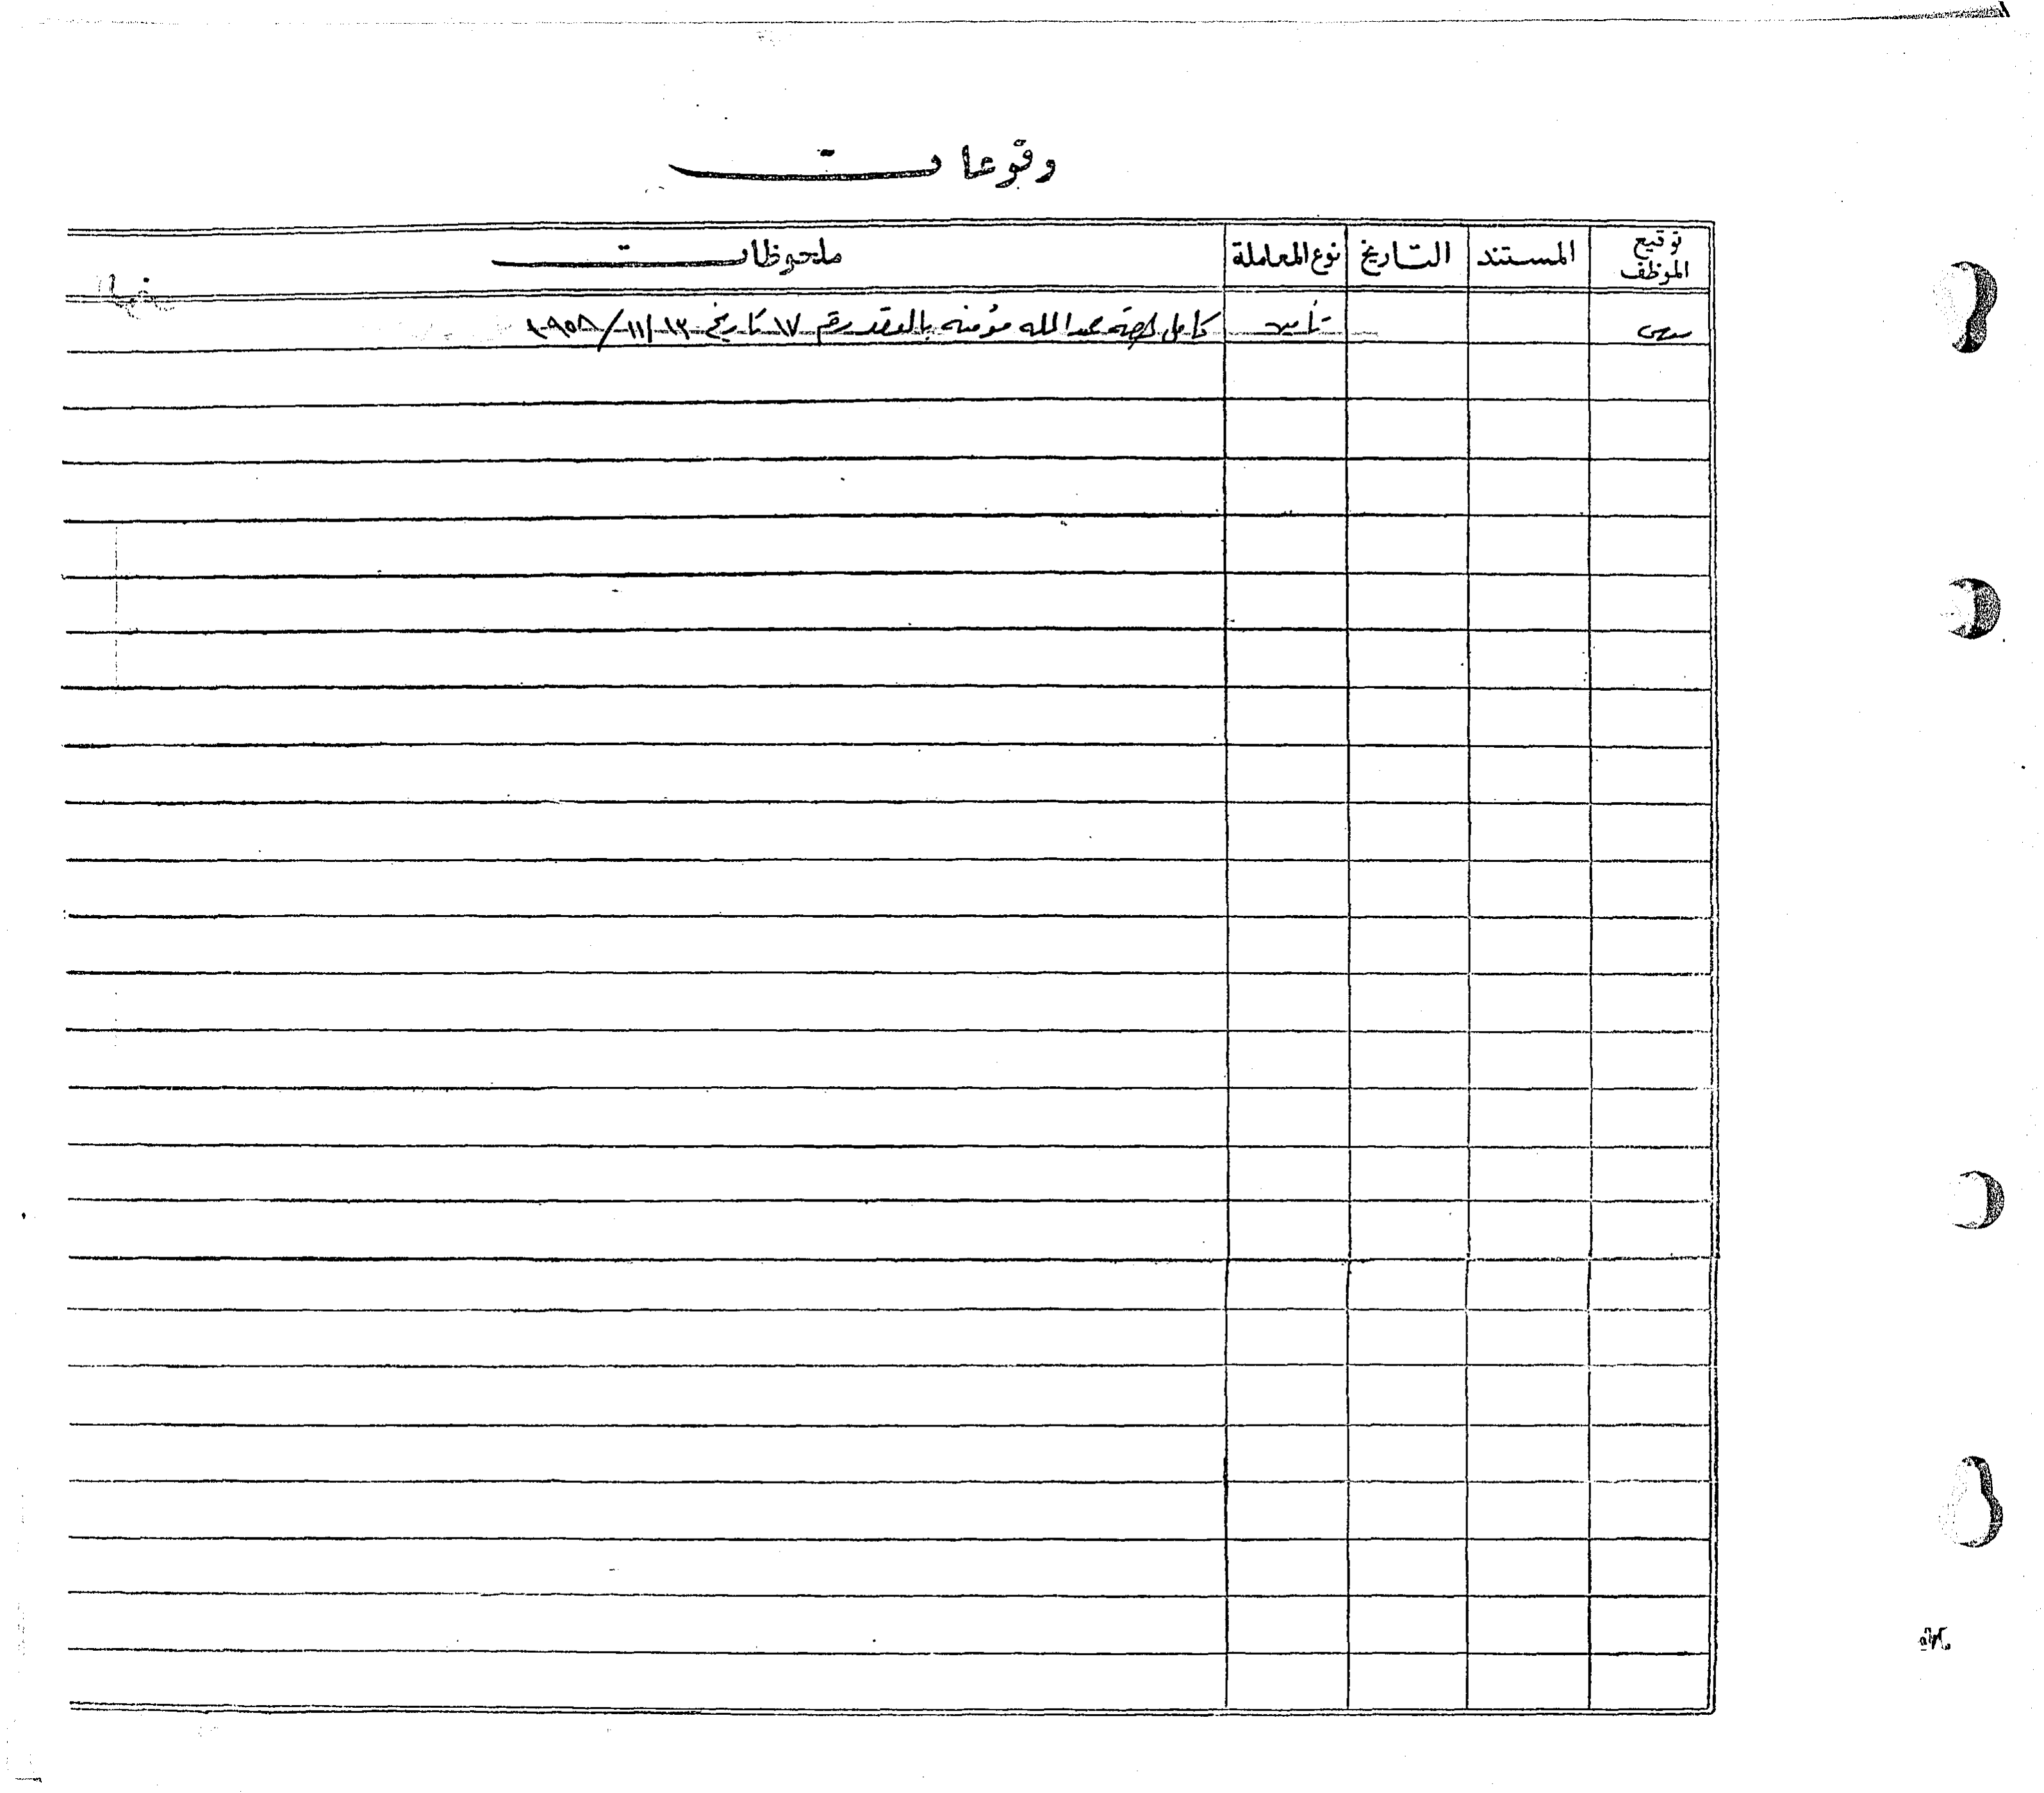 وقوعات
توقيع الموظف المستند التاريخ نوع المعاملة ملحوظات
تأمين كامل حصة عبد الله مؤمنه بالعقد رقم ١٧ تاريخ ١٣/١١/١٩٥٨